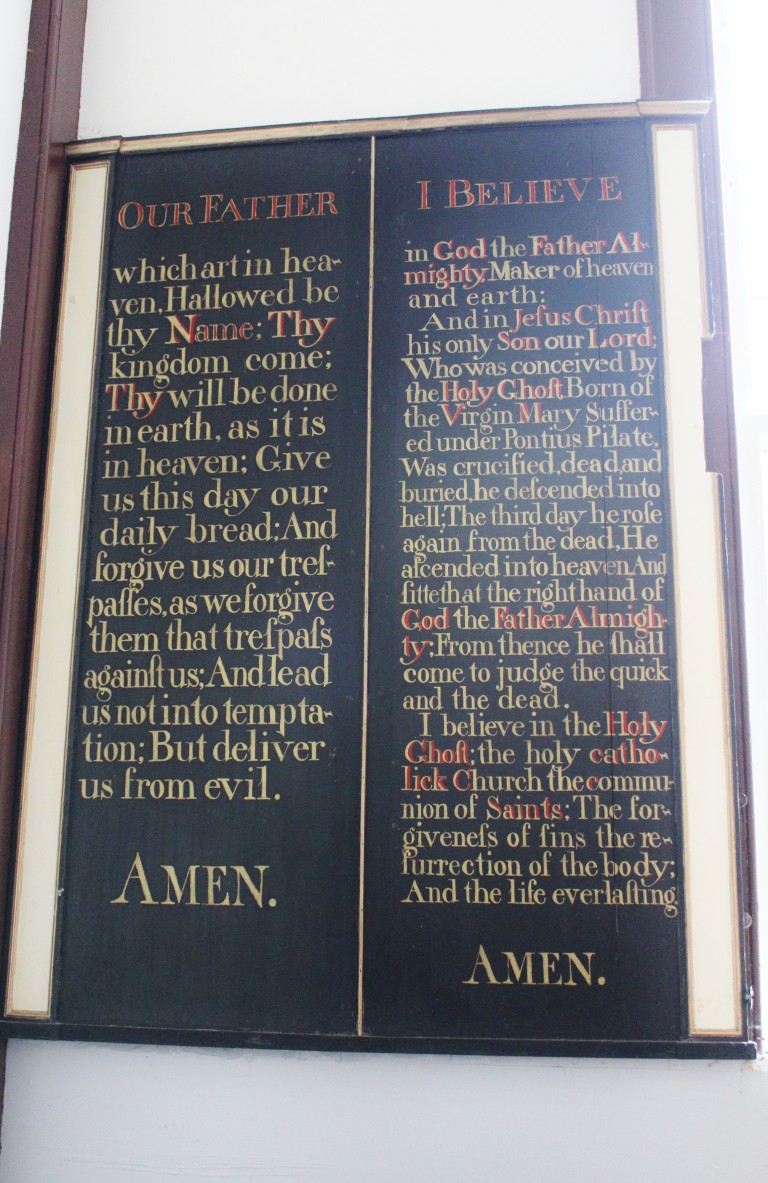 OUR FATHER
which art in hea~
ven, Hallowed be
thy Name; Thy
kingdom come;
Thy will be done
in earth, as it is
in heaven; Give
us this day our
daily bread; And
forgive us our treſ-
paſſes, as we forgive
them that treſpaſs
againſt us; And lead
us not into tempta~
tion; But deliver
us from evil.
AMEN.
I BELIEVE
in God the Father Al-
mighty, Maker of heaven
and earth:
And in Jeſus Chriſt
his only Son our Lord;
Who was conceived by
the Holy Ghoſt, Born of
the Virgin Mary Suffer-
ed under Pontius Pilate,
Was crucified, dead, and
buried, he deſcended into
hell; The third day he roſe
again from the dead, He
aſcended into heaven And
ſitteth at the right hand of
God the Father Almigh-
ty; From thence he ſhall
come to judge the quick
and the dead.
I believe in the Holy
Ghoſt; the holy catho~
lick Church the commu-
nion of Saints; The for~
giveneſs of ſins the re-
ſurrection of the body;
And the life everlaſting.
AMEN.